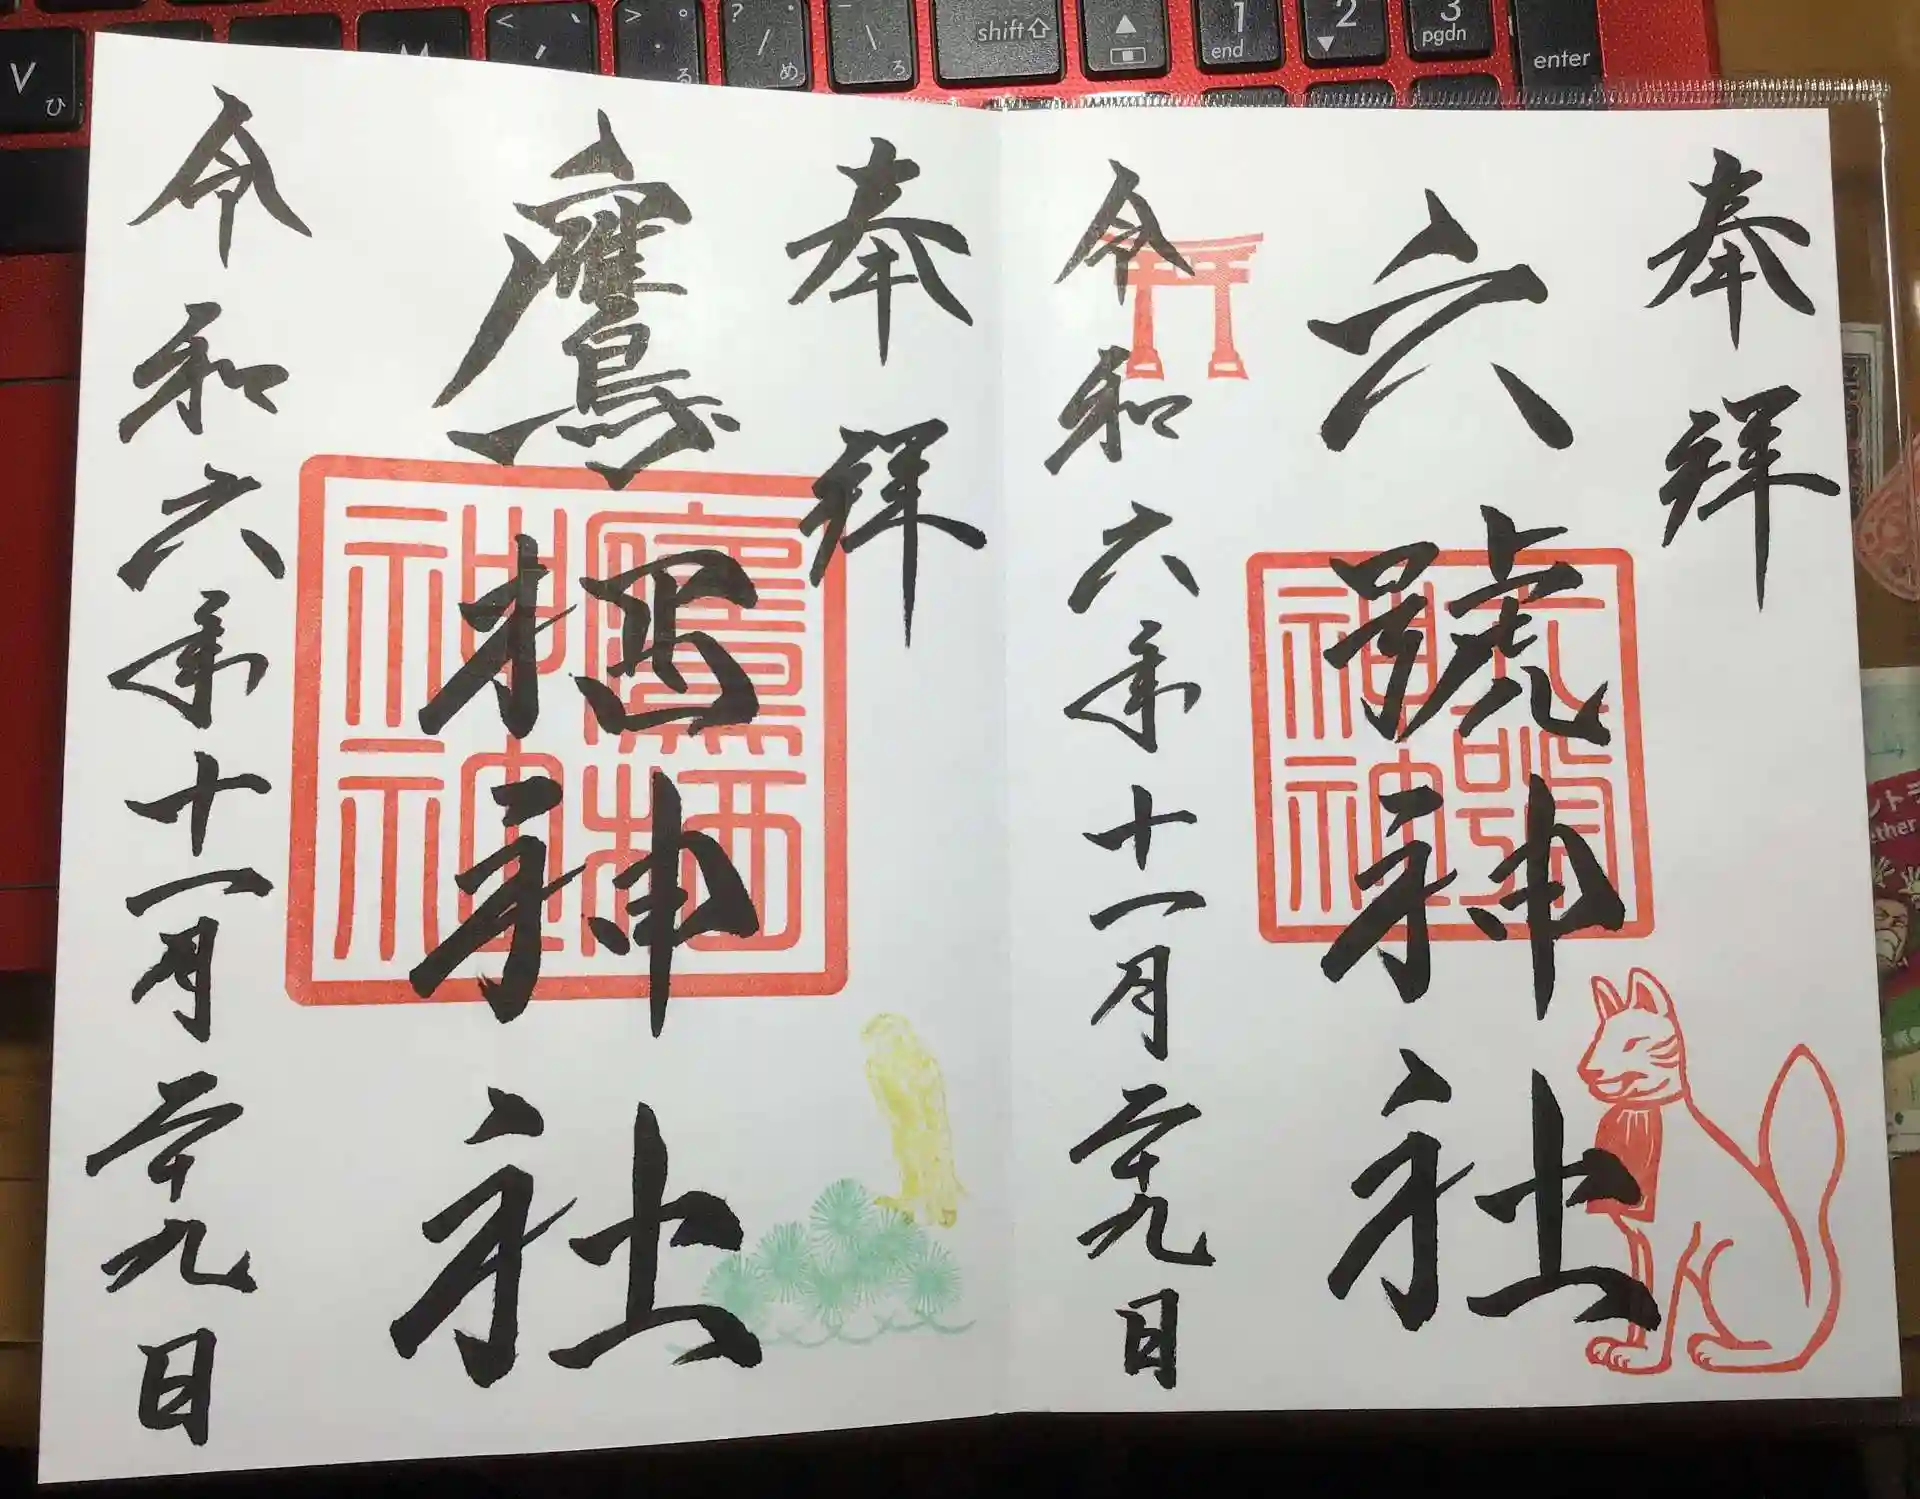 奉拜
六號神社
令和六年十一月二十九日
六号
神社
奉拜
鷹栖神社
令和六年十一月二十九日
鷹栖
神社
V
ひ
M
<
、
,
>
。
.
る
?
・
/
め
_
\
ろ
shift
1
end
2
3
pgdn
enter
ether